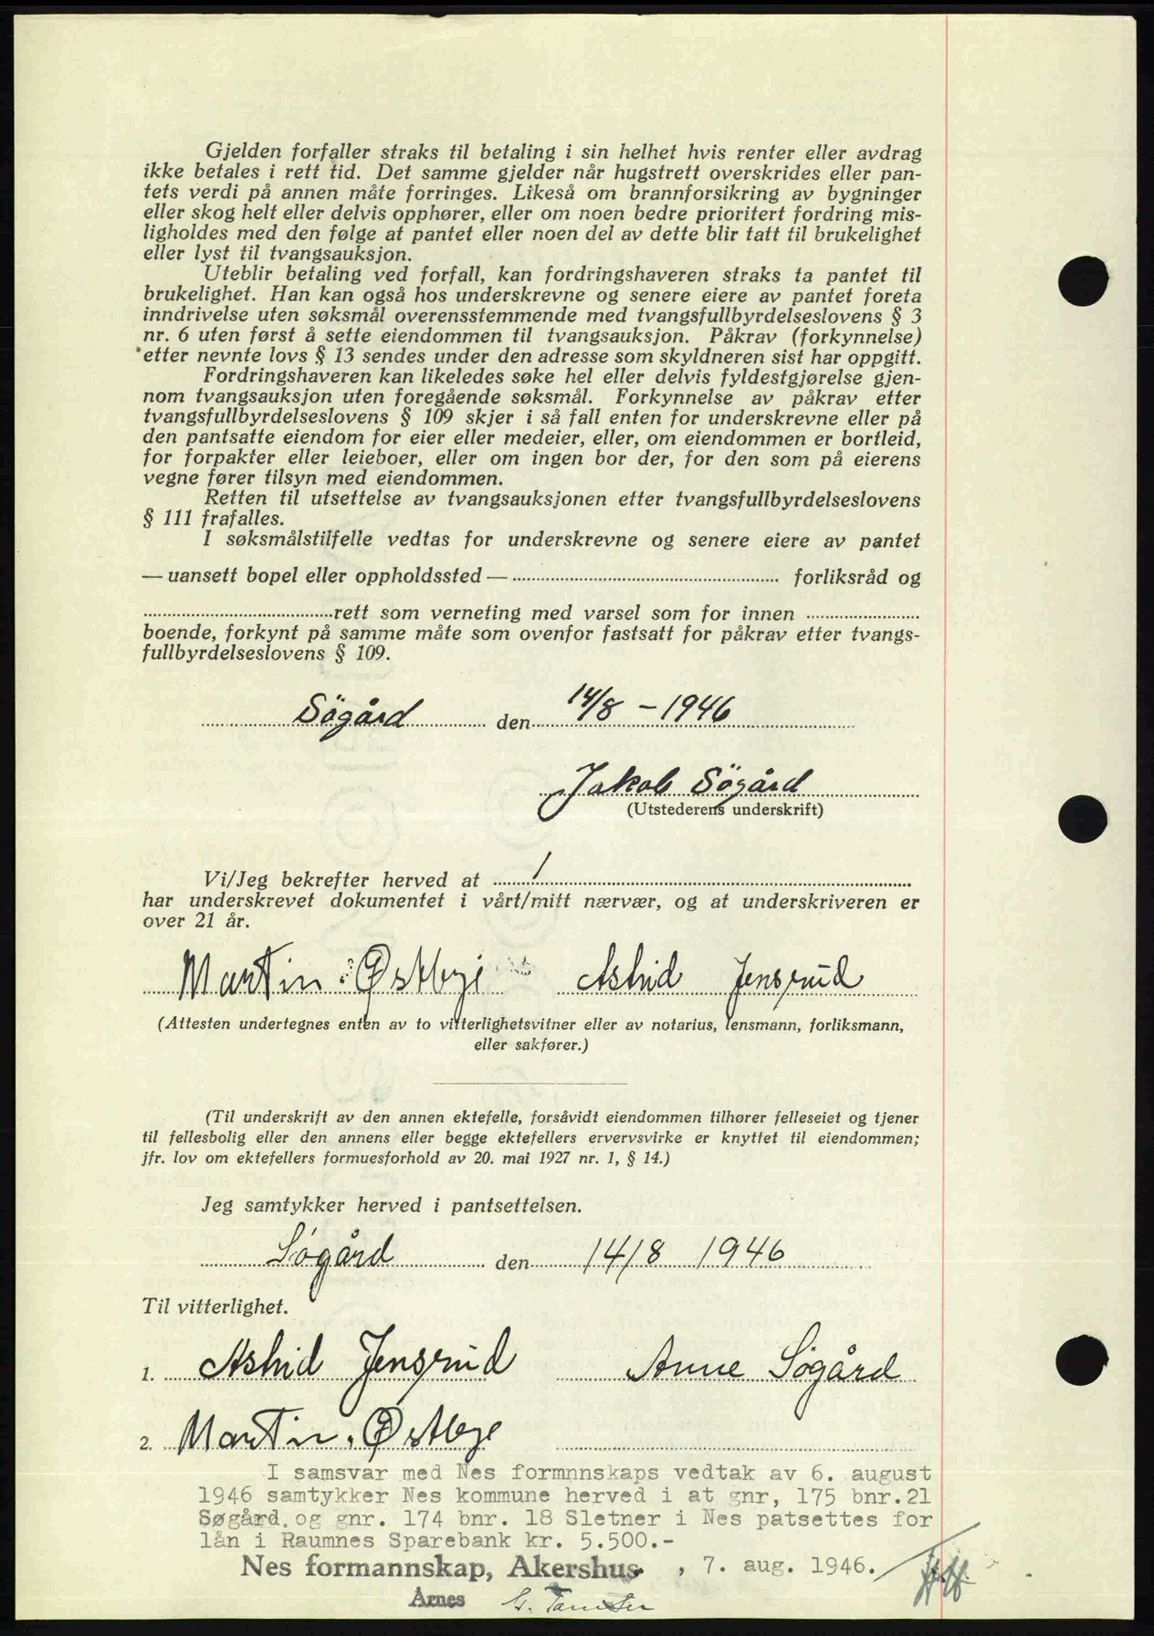 Gjelden forfaller straks til betaling i sin helhet hvis renter eller avdrag
ikke betales i rett tid. Det samme gjelder når hugstrett overskrides eller pan-
tets verdi på annen måte forringes. Likeså om brannforsikring av bygninger
eller skog helt eller delvis opphører, eller om noen bedre prioritert fordring mis-
ligholdes med den følge at pantet eller noen del av dette blir tatt til brukelighet
eller lyst til tvangsauksjon.
Uteblir betaling ved forfall, kan fordringshaveren straks ta pantet til
brukelighet. Han kan også hos underskrevne og senere eiere av pantet foreta
inndrivelse uten søksmål overensstemmende med tvangsfullbyrdelseslovens § 3
nr. 6 uten først å sette eiendommen til tvangsauksjon. Påkrav (forkynnelse)
etter nevnte lovs § 13 sendes under den adresse som skyldneren sist har oppgitt.
Fordringshaveren kan likeledes søke hel eller delvis fyldestgjørelse gjen-
nom tvangsauksjon uten foregående søksmål. Forkynnelse av påkrav etter
tvangsfullbyrdelseslovens § 109 skjer i så fall enten for underskrevne eller på
den pantsatte eiendom for eier eller medeier, eller, om eiendommen er bortleid,
for forpakter eller leieboer, eller om ingen bor der, for den som på eierens
vegne fører tilsyn med eiendommen.
Retten til utsettelse av tvangsauksjonen etter tvangsfullbyrdelseslovens
§ 111 frafalles.
I søksmålstilfelle vedtas for underskrevne og senere eiere av pantet
— uansett bopel eller oppholdssted — ........ forliksråd og
........rett som verneting med varsel som for innen ........
boende, forkynt på samme måte som ovenfor fastsatt for påkrav etter tvangs-
fullbyrdelseslovens § 109.
Søgård den 14/8 - 1946
Jakob Søgård
(Utstederens underskrift)
Vi/Jeg bekrefter herved at ........
har underskrevet dokumentet i vårt/mitt nærvær, og at underskriveren er
over 21 år.
Martin Østbye Astrid Jensrud
(Attesten undertegnes enten av to vitterlighetsvitner eller av notarius, lensmann, forliksmann,
eller sakfører.)
(Til underskrift av den annen ektefelle, forsåvidt eiendommen tilhører felleseiet og tjener
til fellesbolig eller den annens eller begge ektefellers ervervsvirke er knyttet til eiendommen;
jfr. lov om ektefellers formuesforhold av 20. mai 1927 nr. 1, § 14.)
Jeg samtykker herved i pantsettelsen.
Søgård den 14/8 1946
Til vitterlighet.
1. Astrid Jensrud Anne Søgård
2. Martin Østbye
I samsvar med Nes formnnskaps vedtak av 6. august
1946 samtykker Nes kommune herved i at gnr, 175 bnr.21
Søgård. og gnr. 174 bnr. 18 Sletner i Nes patsettes for
lån i Raumnes Sparebank kr. 5.500.-
Nes formannskap, Akershus , 7. aug. 1946.
Årnes